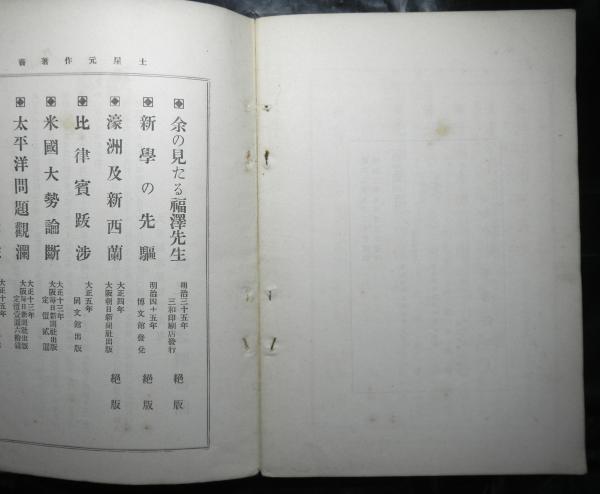 土屋元作著書
余の見たる福澤先生 明治三十五年 三和印刷店發行 絶版
新學の先驅 明治四十五年 博文館發兌 絶版
濠洲及新西蘭 大正四年 大阪朝日新聞社出版 絶版
比律賓跋渉 大正五年 同文館出版
米國大勢論斷 大正十三年 大阪每日新聞社出版 定價貳圓
太平洋問題觀瀾 大正十三年 大阪每日新聞社出版 定價壹圓六拾錢
大正十五年